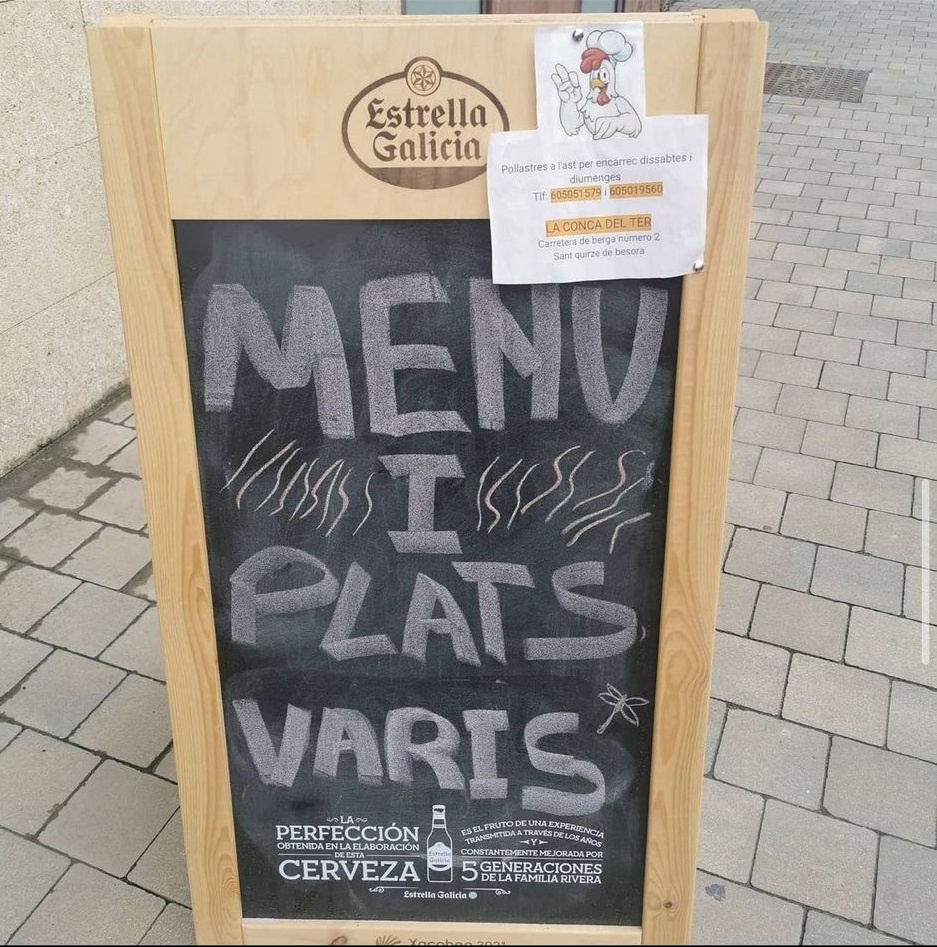 Estrella
Galicia
Pollastres a l'ast per encarrec dissabtes i
diumenges
Tlf: 605051579 i 605019560
LA CONCA DEL TER
Carretera de berga número 2
Sant quirze de besora
MENU
I
PLATS
VARIS
LA
PERFECCIÓN
OBTENIDA EN LA ELABORACIÓN
DE ESTA
CERVEZA
Estrella
Galicia
ES EL FRUTO DE UNA EXPERIENCIA
TRANSMITIDA A TRAVÉS DE LOS AÑOS
Y
CONSTANTEMENTE MEJORADA POR
5 GENERACIONES
DE LA FAMILIA RIVERA
Estrella Galicia
Xacobeo 2021